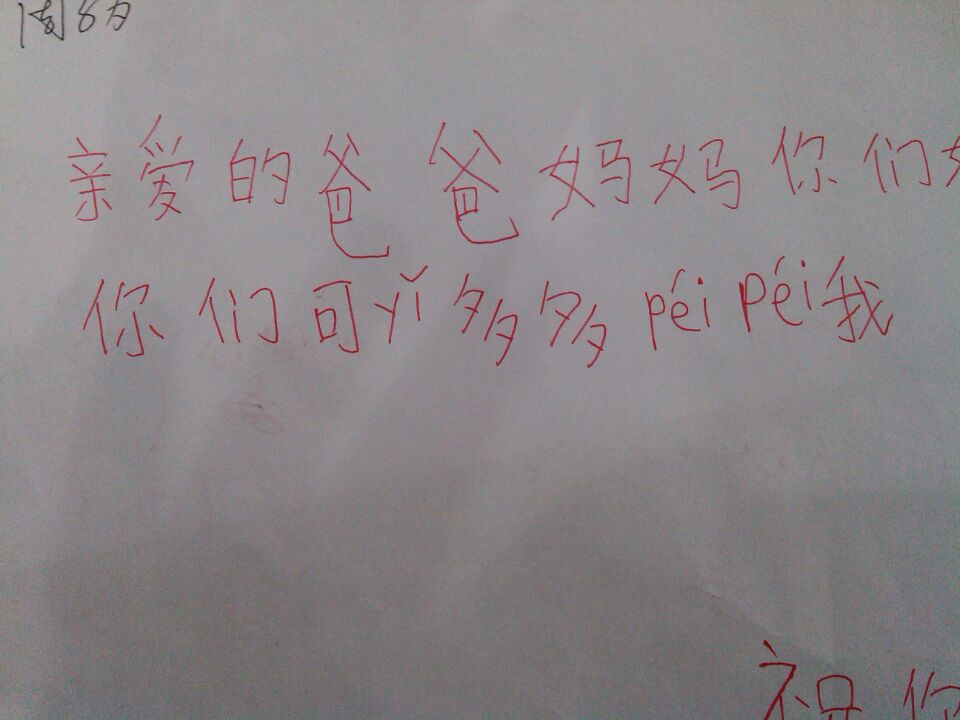 亲爱的爸爸妈妈你们好
你们可yǐ多多péi péi我
祝你